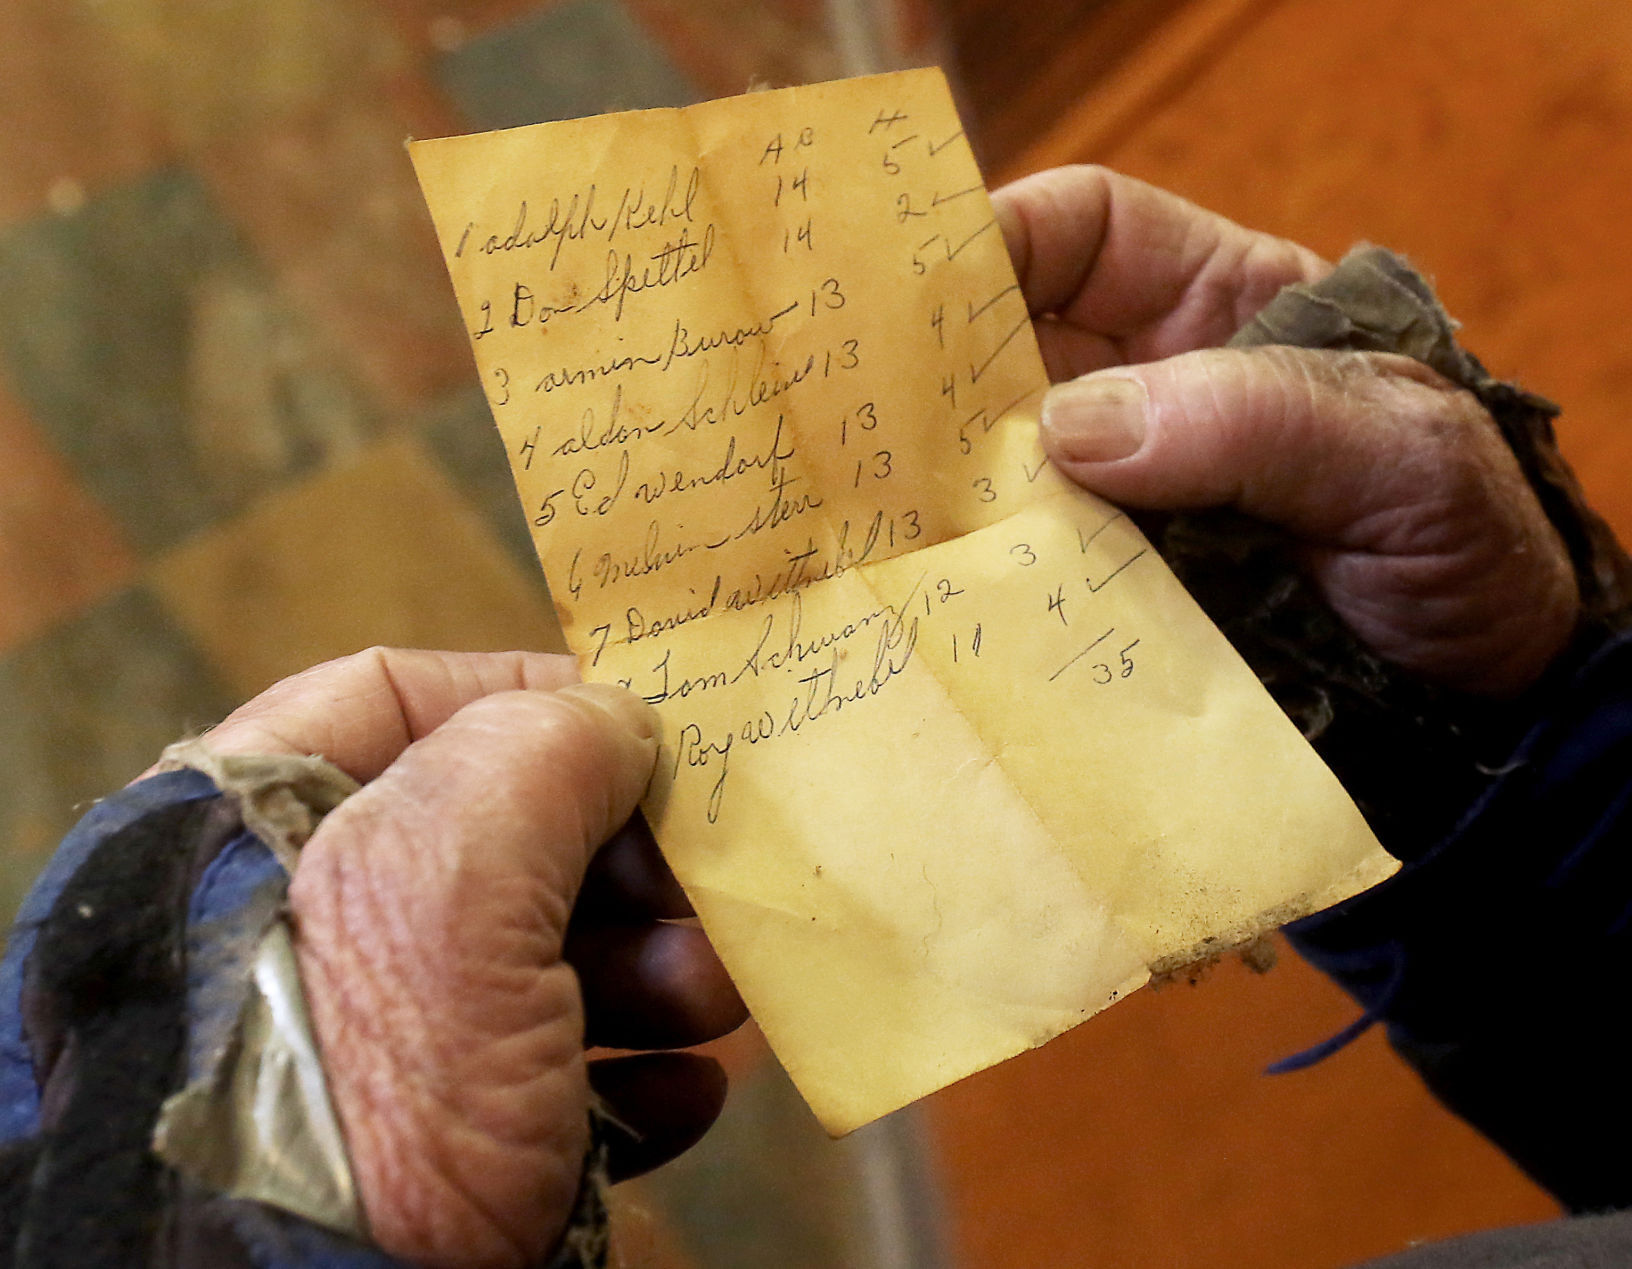 AB H
1 adolph Kehl 14 5 ✓
2 Don Spittel 14 2 ✓
3 armin Burow 13 5 ✓
4 aldon 13 4 ✓
5 Ed wendorf 13 4 ✓
6 Melvin sterr 13 5 ✓
7 David wittnebel 13 3 ✓
Tom Schwanz 12 3 ✓
Roy wittnebel 11 4 ✓
35